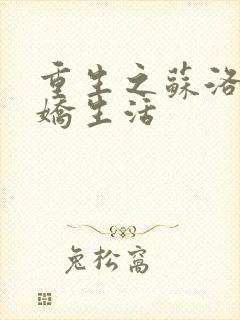 重生之蘇洛
嬌生活
兔松窩